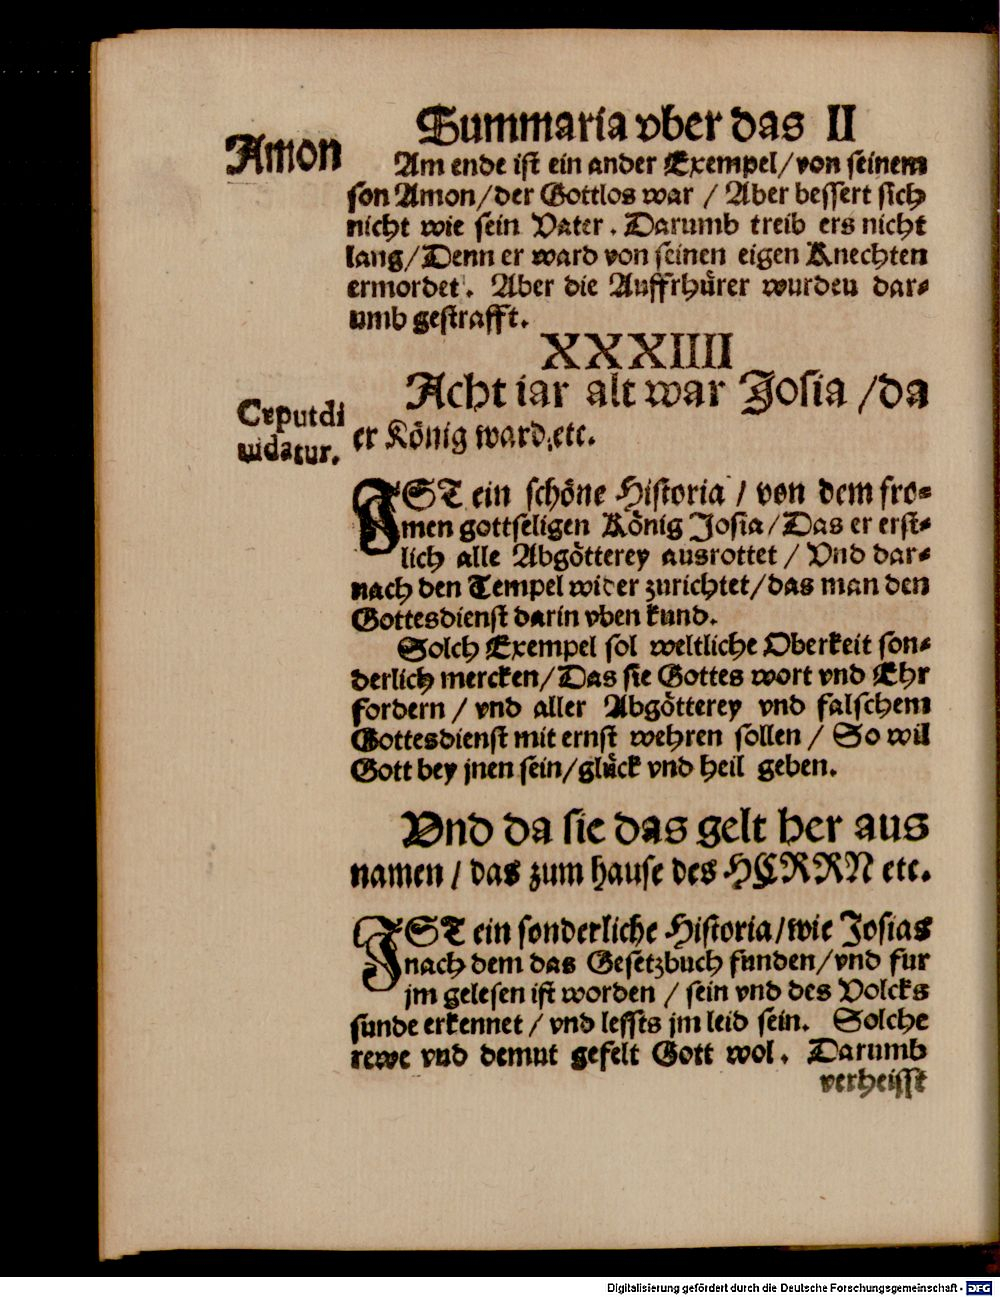 Summaria vber das II
Amon
Am ende ist ein ander Exempel/von seinem
son Amon/der Gottlos war / Aber bessert sich
nicht wie sein Vater. Darumb treib ers nicht
lang/Denn er ward von seinen eigen Knechten
ermordet. Aber die Auffrhürer wurden dar-
umb gestrafft.
XXXIIII
Acht iar alt war Josia /da
er König ward,etc.
Caput di
uidatur.
IST ein schöne Historia / von dem fro-
men gottseligen König Josia/Das er erst-
lich alle Abgötterey ausrottet / Vnd dar-
nach den Tempel wider zurichtet/das man den
Gottesdienst darin vben kund.
Solch Exempel sol weltliche Oberkeit son-
derlich mercken/Das sie Gottes wort vnd Ehr
fordern / vnd aller Abgötterey vnd falschem
Gottesdienst mit ernst wehren sollen / So wil
Gott bey jnen sein/glück vnd heil geben.
Vnd da sie das gelt her aus
namen / das zum hause des HERRN etc.
IST ein sonderliche Historia/wie Josias
nach dem das Gesetzbuch funden/vnd fur
jm gelesen ist worden / sein vnd des Volcks
sunde erkennet / vnd lessts jm leid sein. Solche
rewe vnd demut gefelt Gott wol. Darumb
verheisst
Digitalisierung gefördert durch die Deutsche Forschungsgemeinschaft - DFG